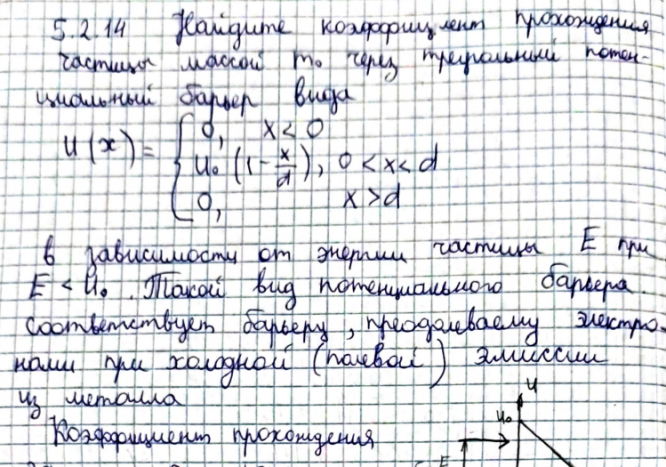 5.2.14 Найдите коэффициент прохождения
частицы массой m₀ через треугольный потен-
циальный барьер вида
U(x) = { 0, x < 0
U₀ (1 - x/d), 0 < x < d
0, x > d
в зависимости от энергии частицы E при
E < U₀. Такой вид потенциального барьера
соответствует барьеру, преодолеваему электро-
нами при холодной (полевой) эмиссии
из металла
Коэффициент прохождения
U
U₀
E